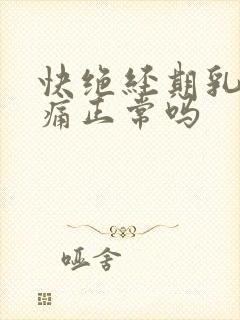 快绝经期乳
痛正常吗
哑舍